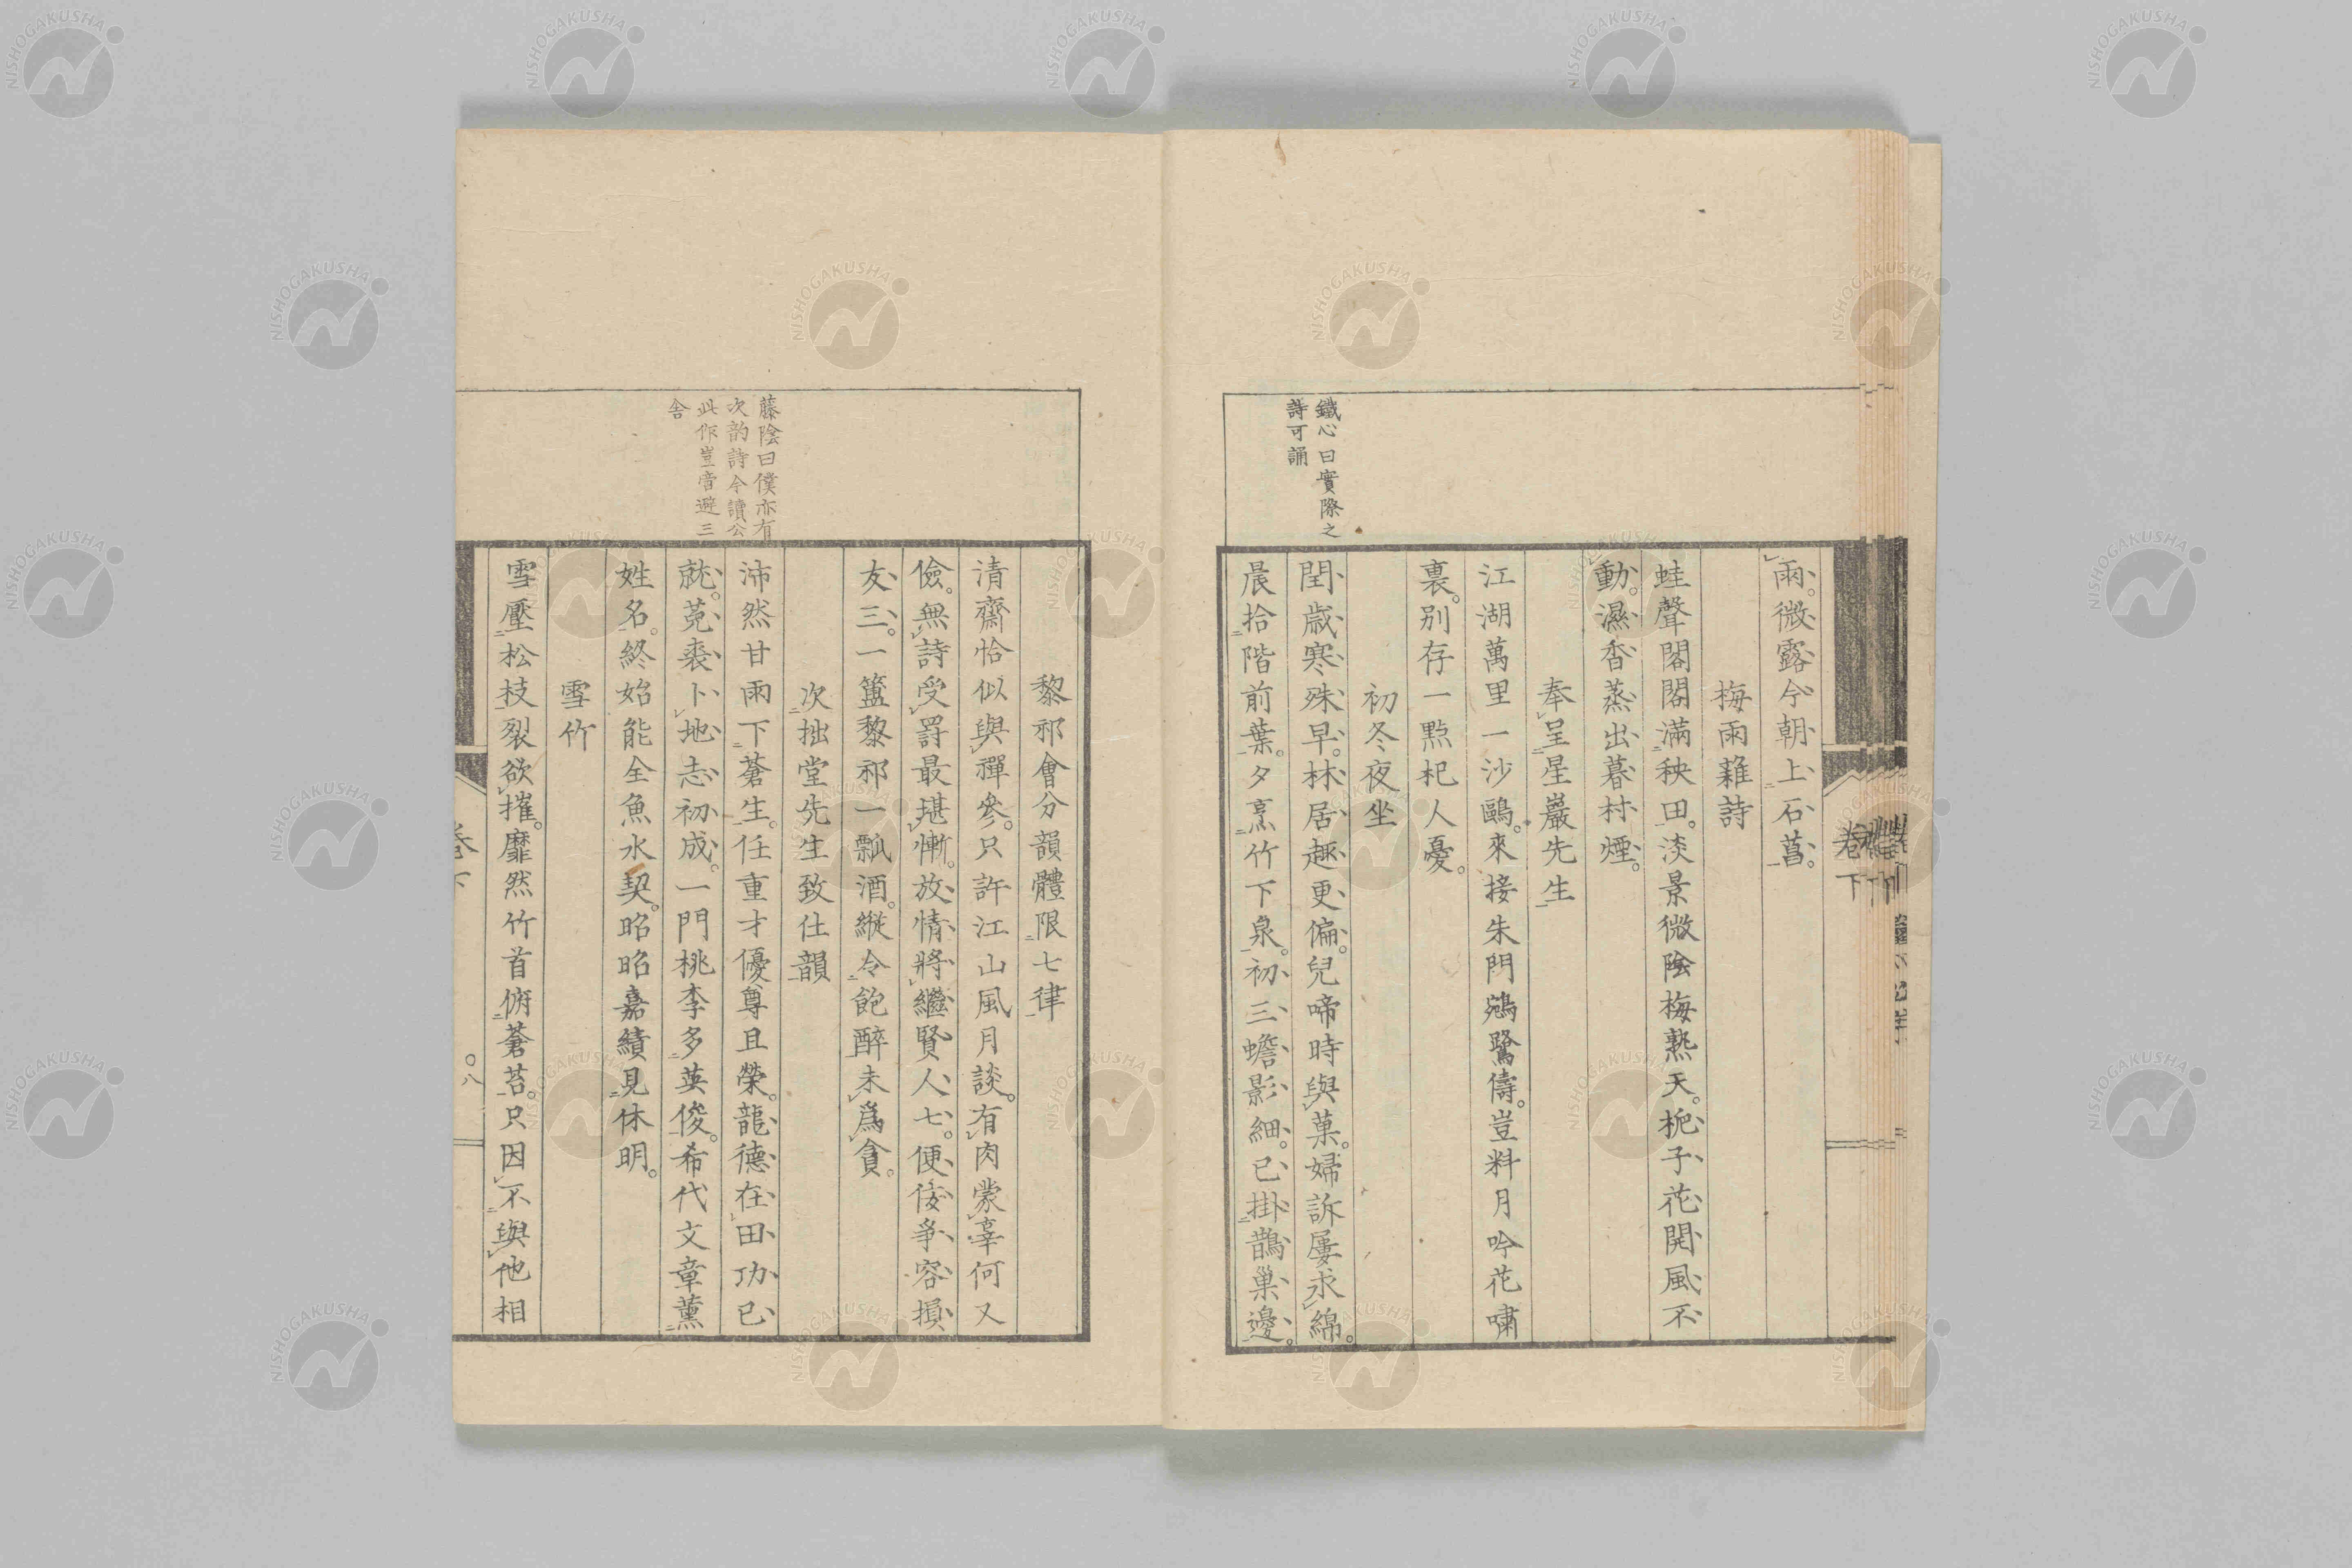 雨。微露今朝上石菖。
梅雨雜詩
蛙聲閣閣滿秧田。淡景微陰梅熟天。梔子花開風不
動。濕香蒸出暮村煙。
奉呈星巖先生
江湖萬里一沙鷗。來接朱門鵷鷺儔。豈料月吟花嘯
裏。別存一點杞人憂。
初冬夜坐
閏歲寒殊早。林居趣更偏。兒啼時與菓。婦訴屢求綿。
晨拾階前葉。夕烹竹下泉。初三蟾影細。已掛鵲巢邊。
鐵心曰實際之
詩可誦
卷下
黎祁會分韻體限七律
清齋恰似與禪參。只許江山風月談。有肉蒙辜何又
儉。無詩受罰最堪慚。放情將繼賢人七。便佞爭容損
友三。一簋黎祁一瓢酒。縱令飽醉未爲貪。
次拙堂先生致仕韻
沛然甘雨下蒼生。任重才優尊且榮。龍德在田功已
就。菟裘卜地志初成。一門桃李多英俊。希代文章薰
姓名。終始能全魚水契。昭昭嘉績見休明。
雪竹
雪壓松枝裂欲摧。靡然竹首俯蒼苔。只因不與他相
藤陰曰僕亦有
次韵詩今讀公
此作豈啻避三
舍
卷下
〇八
NISHOGAKUSHA